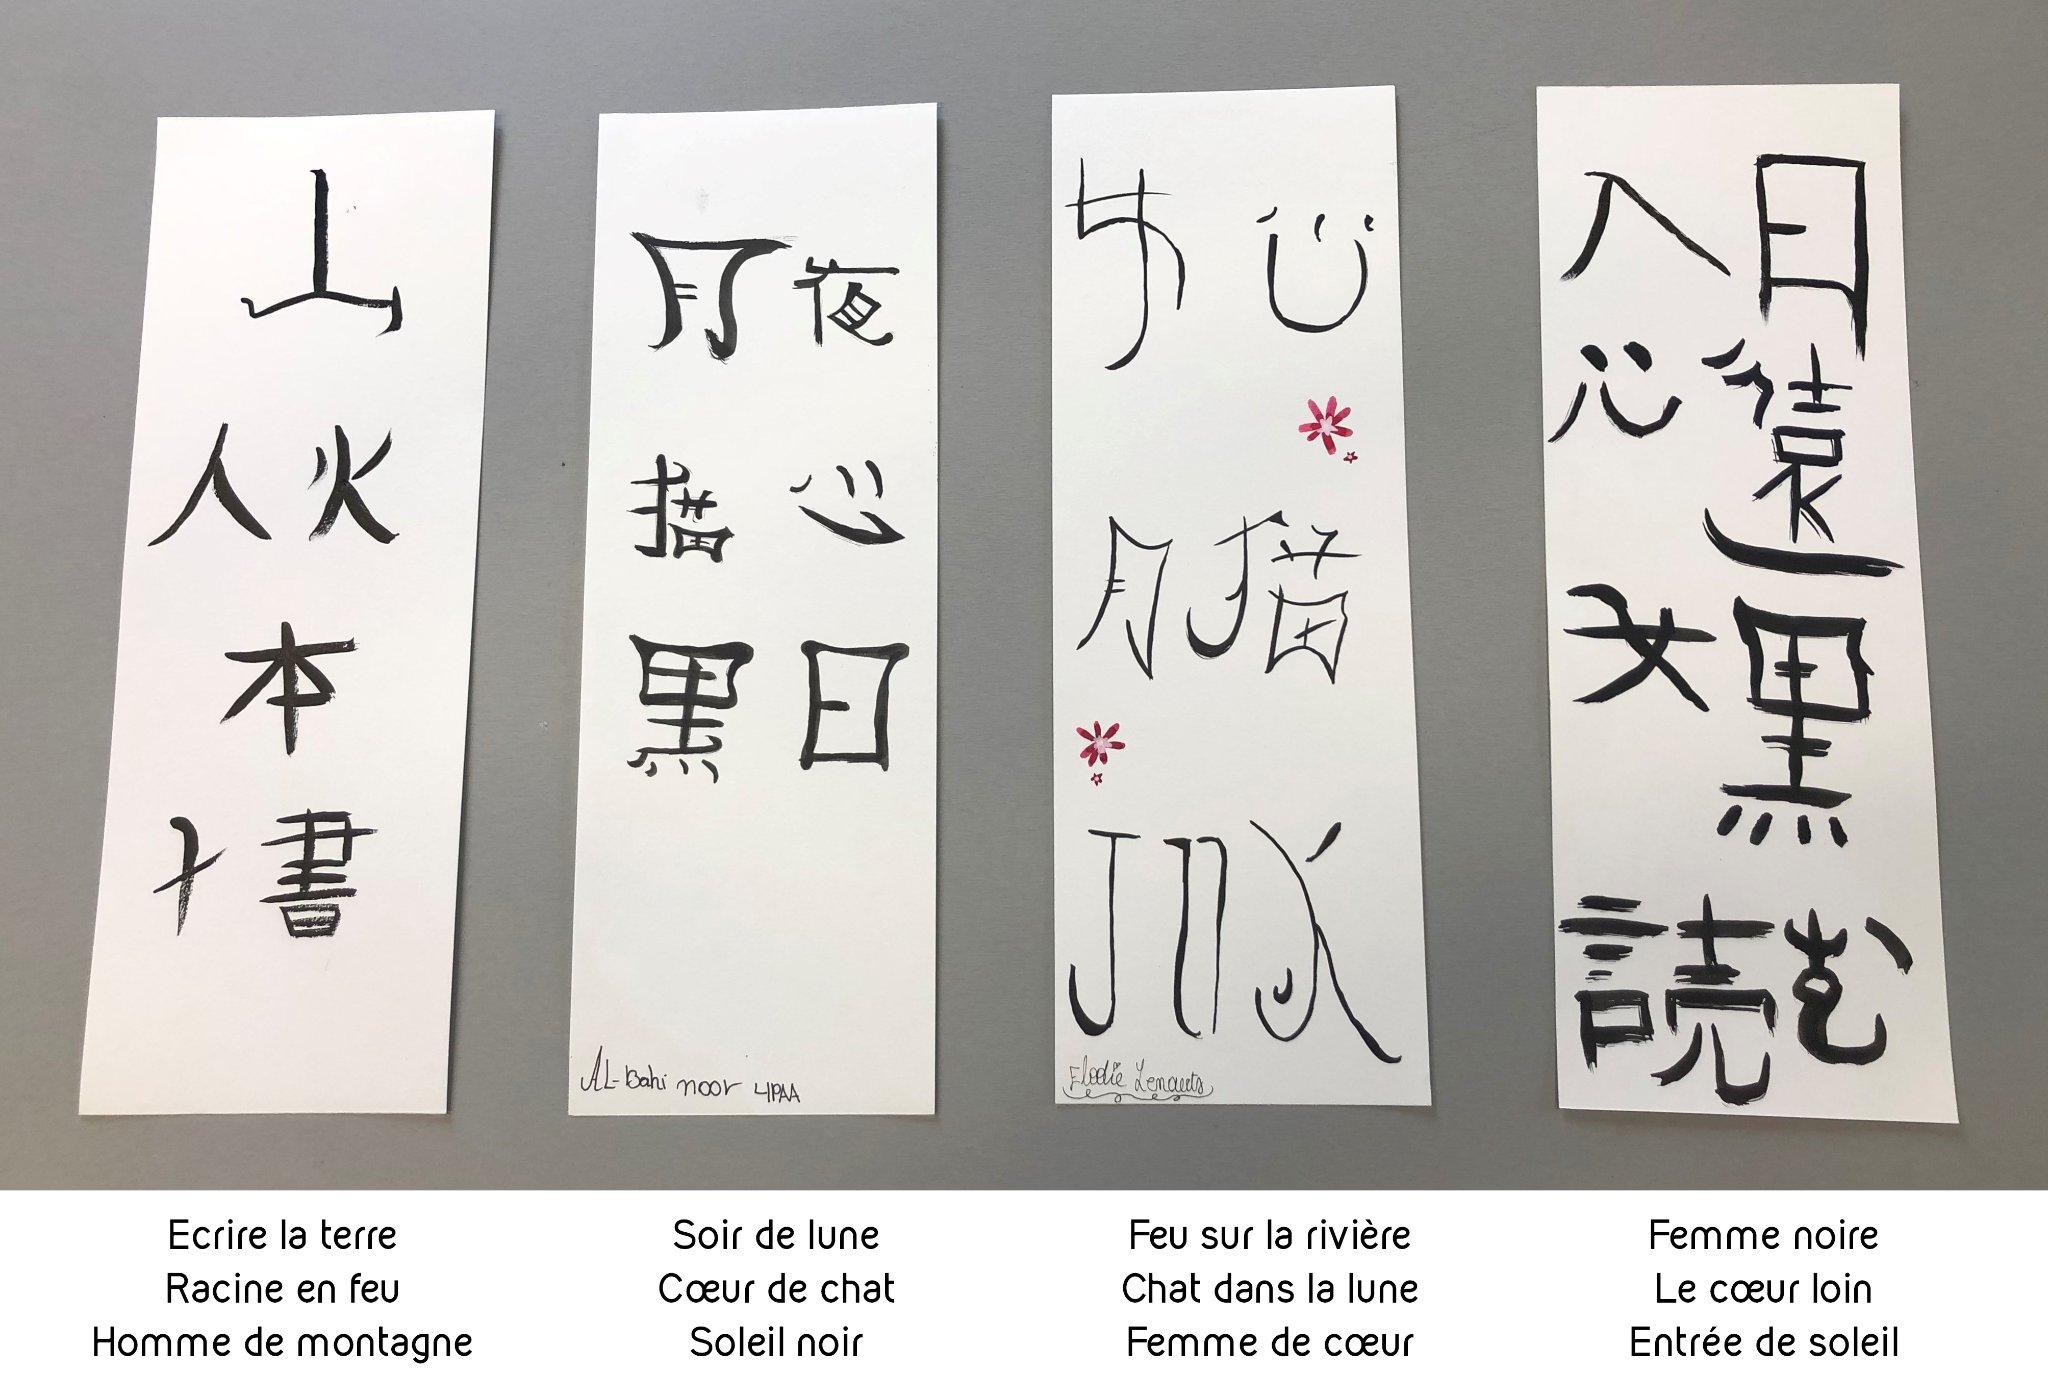 山
人火
本
書
月夜
猫心
黒日
AL-Bahi noor 4PAA
心
月猫
Elodie
入日
心遠
女黒
読む
Ecrire la terre
Racine en feu
Homme de montagne
Soir de lune
Cœur de chat
Soleil noir
Feu sur la rivière
Chat dans la lune
Femme de cœur
Femme noire
Le cœur loin
Entrée de soleil